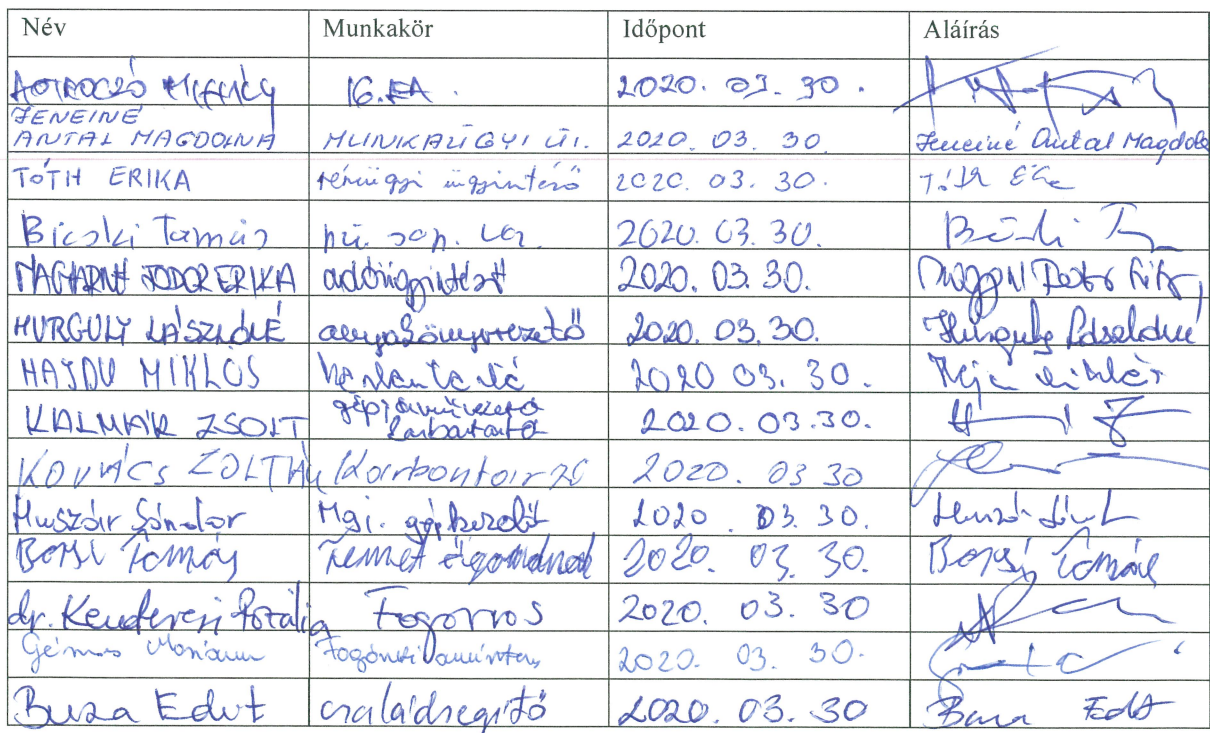 Név Munkakör Időpont Aláírás
IG. EA. 2020. 03. 30.
JENEINÉ
ANTAL MAGDOLNA MUNKAÜGYI ÜI. 2020. 03. 30. Jeneiné Antal Magdolna
TÓTH ERIKA pénzügyi ügyintéző 2020. 03. 30. Tóth
Bicski Tamás pü. 2020. 03. 30.
MAGYARNÉ FODOR ERIKA adóügyintéző 2020. 03. 30.
HURGULY LÁSZLÓNÉ anyakönyvvezető 2020. 03. 30. Hurguly Lászlóné
HAJDU MIKLÓS karbantartó 2020 03. 30.
gépjárművezető
KALMÁR ZSOLT karbantartó 2020. 03. 30.
KOVÁCS ZOLTÁN Karbantartó 2020. 03 30
Huszár Sándor Mgi. gépkezelő 2020. 03. 30.
Borsi Tamás Temető gondnok 2020. 03. 30. Borsi Tamás
dr. Kenderesi Rozália Fogorvos 2020. 03. 30
Mariann 2020. 03. 30.
Buza Edit családsegítő 2020. 03. 30 Buza Edit